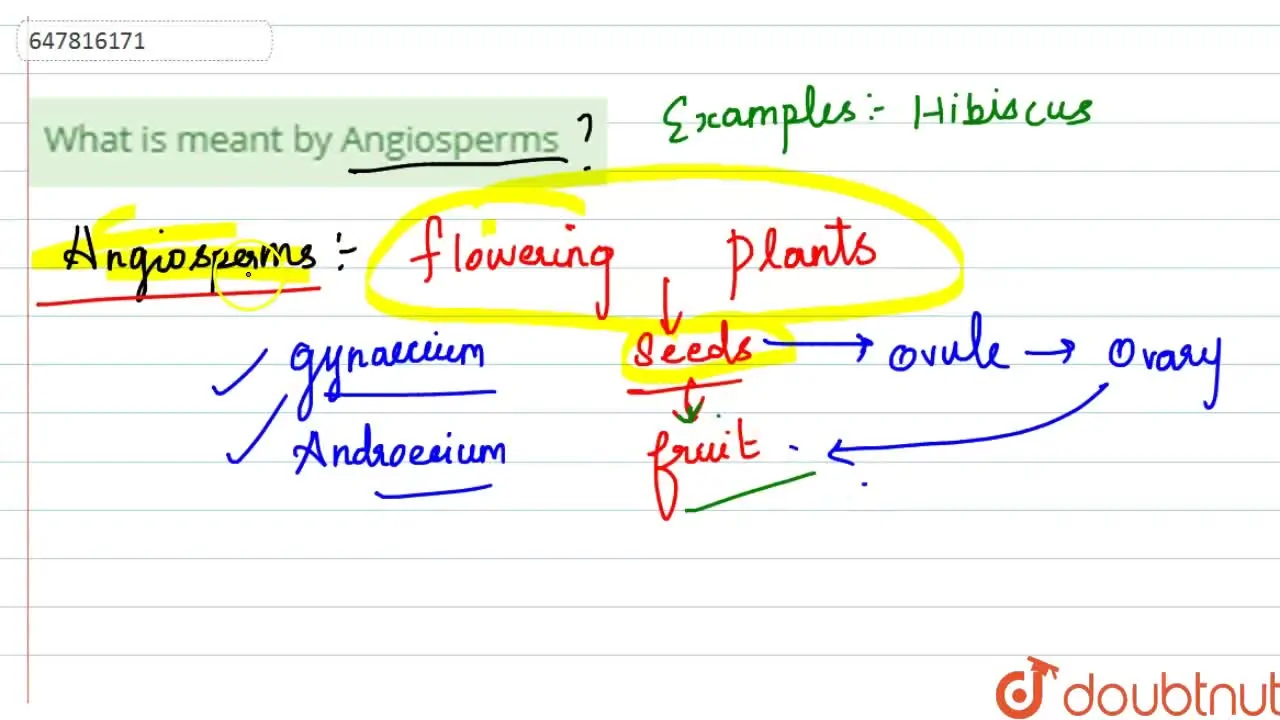 647816171
What is meant by Angiosperms ?
Examples:- Hibiscus
Angiosperms :- flowering plants
gynaecium seeds → ovule → ovary
Androecium fruit
doubtnut